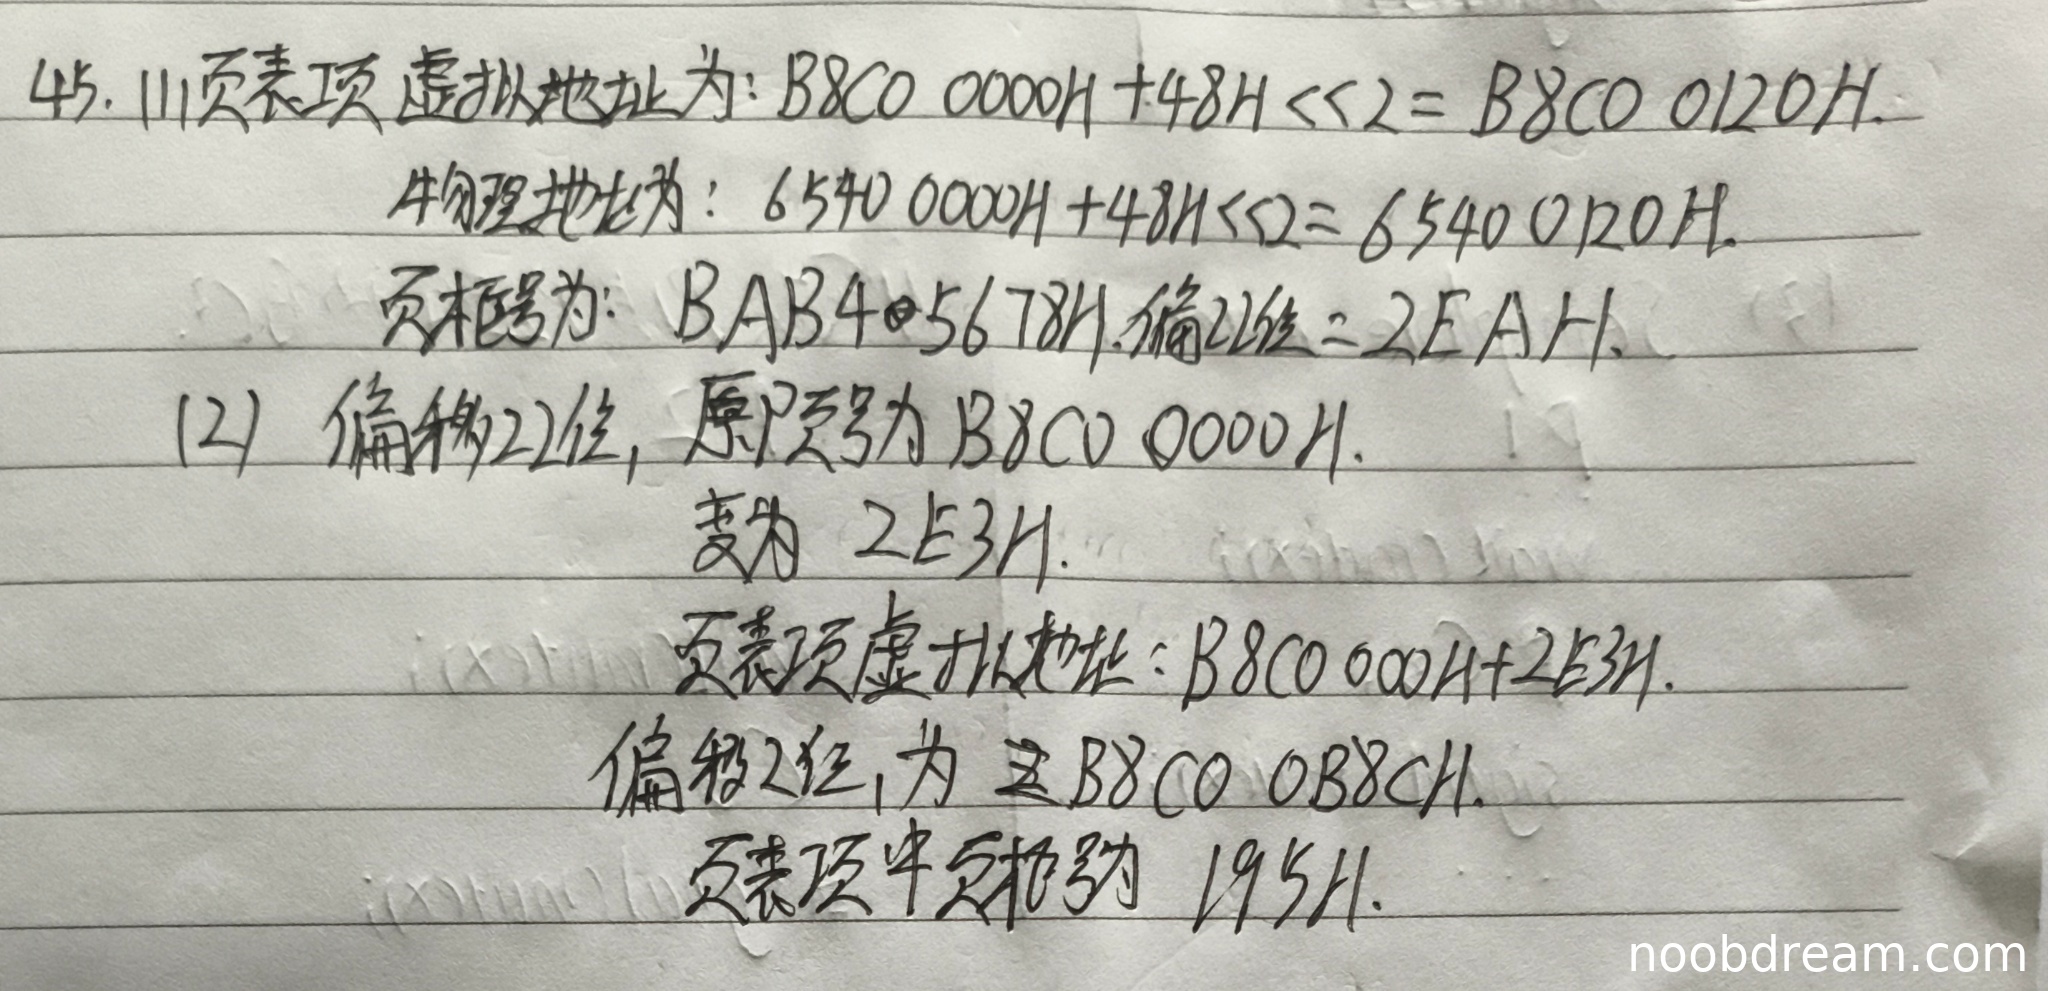 45. (1)页表项虚拟地址为: B8C0 0000H+48H<<2= B8C0 0120H.
物理地址为: 6540 0000H+48H<<2= 6540 0120H.
页框号为: BAB4 5678H.偏22位=2EAH.
(2) 偏移22位, 原页号为 B8C0 0000H.
变为 2E3H.
页表项虚拟地址: B8C0 000H+2E3H.
偏移2位, 为 B8C0 0B8CH.
页表项中页框号为 195H.
noobdream.com